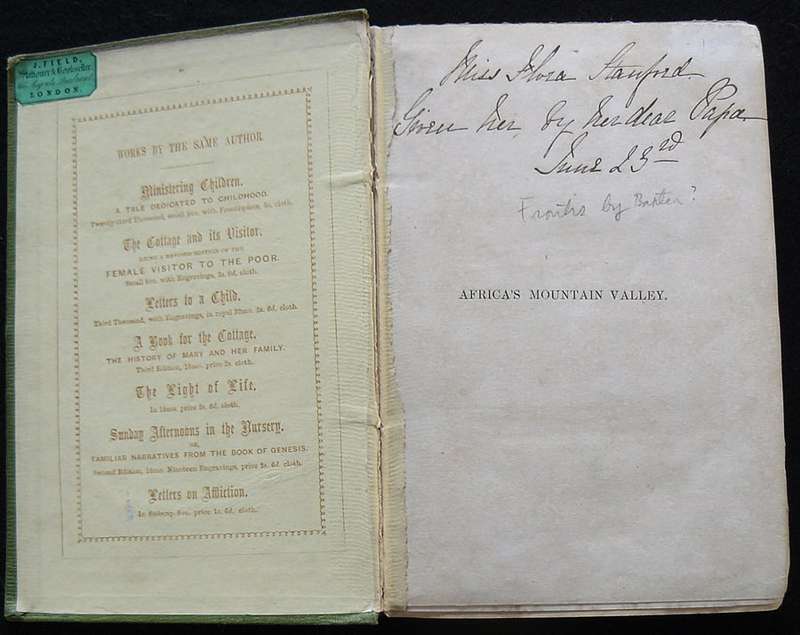 J. FIELD,
Stationer & Bookseller
LONDON.
WORKS BY THE SAME AUTHOR
Ministering Children.
A TALE DEDICATED TO CHILDHOOD.
Twenty-third Thousand, small 8vo. with Frontispiece, 5s. cloth.
The Cottage and its Visitor.
BEING A REVISED EDITION OF THE
FEMALE VISITOR TO THE POOR.
Small 8vo. with Engravings, 3s. 6d. cloth.
Letters to a Child.
Third Thousand, with Engravings, in royal 32mo. 2s. 6d. cloth.
A Book for the Cottage.
THE HISTORY OF MARY AND HER FAMILY.
Third Edition, 18mo. price 3s. cloth.
The Light of Life.
In 18mo. price 2s. 6d. cloth.
Sunday Afternoons in the Nursery.
OR,
FAMILIAR NARRATIVES FROM THE BOOK OF GENESIS.
Second Edition, 16mo. Nineteen Engravings, price 3s. 6d. cloth.
Letters on Affliction.
In foolscap 8vo. price 1s. 6d. cloth.
Miss Flora Stanford
Given her by her dear Papa
June 23rd
Frontis by Baxter?
AFRICA'S MOUNTAIN VALLEY.